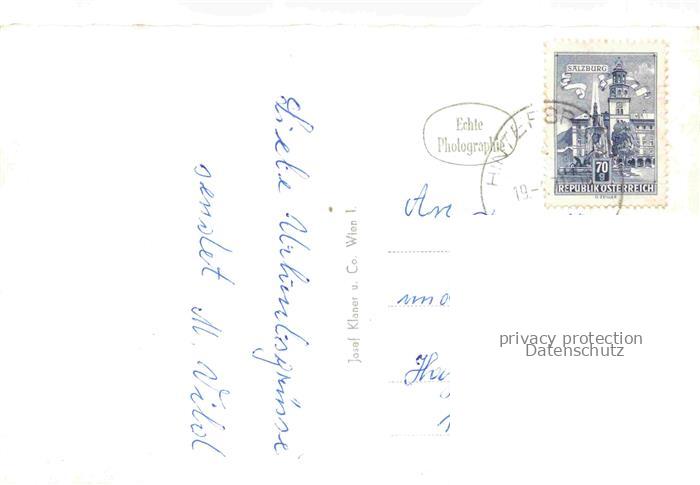 Liebe Urlaubsgrüsse
sendet M.
Josef Klaner u. Co. Wien I.
Echte
Photographie
SALZBURG
70
REPUBLIK ÖSTERREICH
HINTER
19.-
An
und
privacy protection
Datenschutz